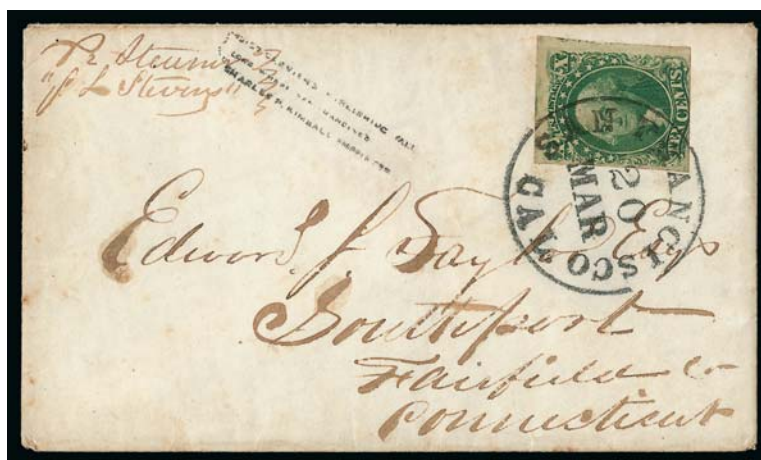 Pr Steamer
"J L Stevens"
CHARLES P. KIMBALL
TEN CENTS
SAN FRANCISCO CAL
20
MAR
Edward J Taylor Esqr
Southport
Fairfield Co
Connecticut